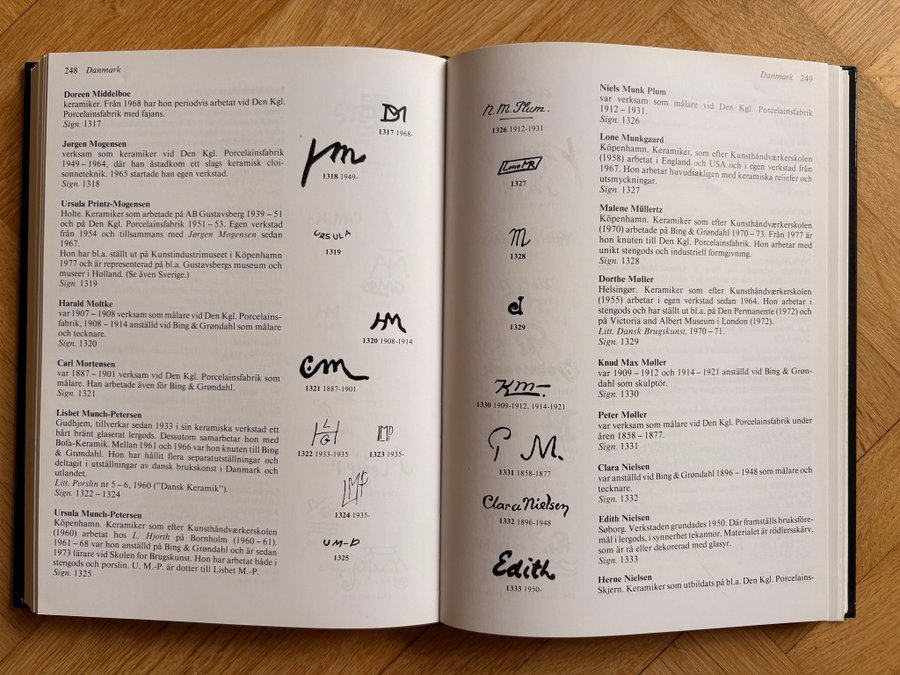 248 Danmark
Doreen Middelboe
keramiker. Från 1968 har hon periodvis arbetat vid Den Kgl.
Porcelainsfabrik med fajans.
Sign. 1317
DM
1317 1968-
Jørgen Mogensen
verksam som keramiker vid Den Kgl. Porcelainsfabrik
1949–1964, där han åstadkom ett slags keramisk cloi-
sonneteknik. 1965 startade han egen verkstad.
Sign. 1318
1318 1949-
Ursula Printz-Mogensen
Holte. Keramiker som arbetade på AB Gustavsberg 1939–51
och på Den Kgl. Porcelainsfabrik 1951–53. Egen verkstad
från 1954 och tillsammans med Jørgen Mogensen sedan
1967.
Hon har bl.a. ställt ut på Kunstindustrimuseet i Köpenhamn
1977 och är representerad på bl.a. Gustavsbergs museum och
museer i Holland. (Se även Sverige.)
Sign. 1319
URSULA
1319
Harald Moltke
var 1907–1908 verksam som målare vid Den Kgl. Porcelains-
fabrik, 1908–1914 anställd vid Bing & Grøndahl som målare
och tecknare.
Sign. 1320
HM
1320 1908-1914
Carl Mortensen
var 1887–1901 verksam vid Den Kgl. Porcelainsfabrik som
målare. Han arbetade även för Bing & Grøndahl.
Sign. 1321
C.M
1321 1887-1901
Lisbet Munch-Petersen
Gudhjem, tillverkar sedan 1933 i sin keramiska verkstad ett
hårt bränt glaserat lergods. Dessutom samarbetar hon med
Bofa-Keramik. Mellan 1961 och 1966 var hon knuten till Bing
& Grøndahl. Hon har hållit flera separatutställningar och
deltagit i utställningar av dansk brukskonst i Danmark och
utlandet.
Litt. Porslin nr 5–6, 1960 ("Dansk Keramik").
Sign. 1322–1324
1322 1933-1935
1323 1935-
LMP
1324 1935-
Ursula Munch-Petersen
Köpenhamn. Keramiker som efter Kunsthåndværkerskolen
(1960) arbetat hos L. Hjorth på Bornholm (1960–61).
1961–68 var hon anställd på Bing & Grøndahl och är sedan
1973 lärare vid Skolen for Brugskunst. Hon har arbetat både i
stengods och porslin. U. M.-P. är dotter till Lisbet M.-P.
Sign. 1325
UM-P
1325
Danmark 249
N. M. Plum.
1326 1912-1931
Niels Munk Plum
var verksam som målare vid Den Kgl. Porcelainsfabrik
1912–1931.
Sign. 1326
Lone MK
1327
Lone Munkgaard
Köpenhamn. Keramiker, som efter Kunsthåndværkerskolen
(1958) arbetat i England och USA och i egen verkstad från
1967. Hon arbetar huvudsakligen med keramiska reliefer och
utsmyckningar.
Sign. 1327
M
1328
Malene Müllertz
Köpenhamn. Keramiker som efter Kunsthåndværkerskolen
(1970) arbetade på Bing & Grøndahl 1970–73. Från 1977 är
hon knuten till Den Kgl. Porcelainsfabrik. Hon arbetar med
unikt stengods och industriell formgivning.
Sign. 1328
d
1329
Dorthe Møller
Helsingør. Keramiker som efter Kunsthåndværkerskolen
(1955) arbetar i egen verkstad sedan 1964. Hon arbetar i
stengods och har ställt ut bl.a. på Den Permanente (1972) och
på Victoria and Albert Museum i London (1972).
Litt. Dansk Brugskunst, 1970–71.
Sign. 1329
Km-
1330 1909-1912, 1914-1921
Knud Max Møller
var 1909–1912 och 1914–1921 anställd vid Bing & Grøn-
dahl som skulptör.
Sign. 1330
P M.
1331 1858-1877
Peter Møller
var verksam som målare vid Den Kgl. Porcelainsfabrik under
åren 1858–1877.
Sign. 1331
Clara Nielsen
1332 1896-1948
Clara Nielsen
var anställd vid Bing & Grøndahl 1896–1948 som målare och
tecknare.
Sign. 1332
Edith
1333 1950-
Edith Nielsen
Søborg. Verkstaden grundades 1950. Där framställs bruksföre-
mål i lergods, i synnerhet tekannor. Materialet är rödlersskärv,
som är rå eller dekorerad med glasyr.
Sign. 1333
Herne Nielsen
Skjern. Keramiker som utbildats på bl.a. Den Kgl. Porcelains-